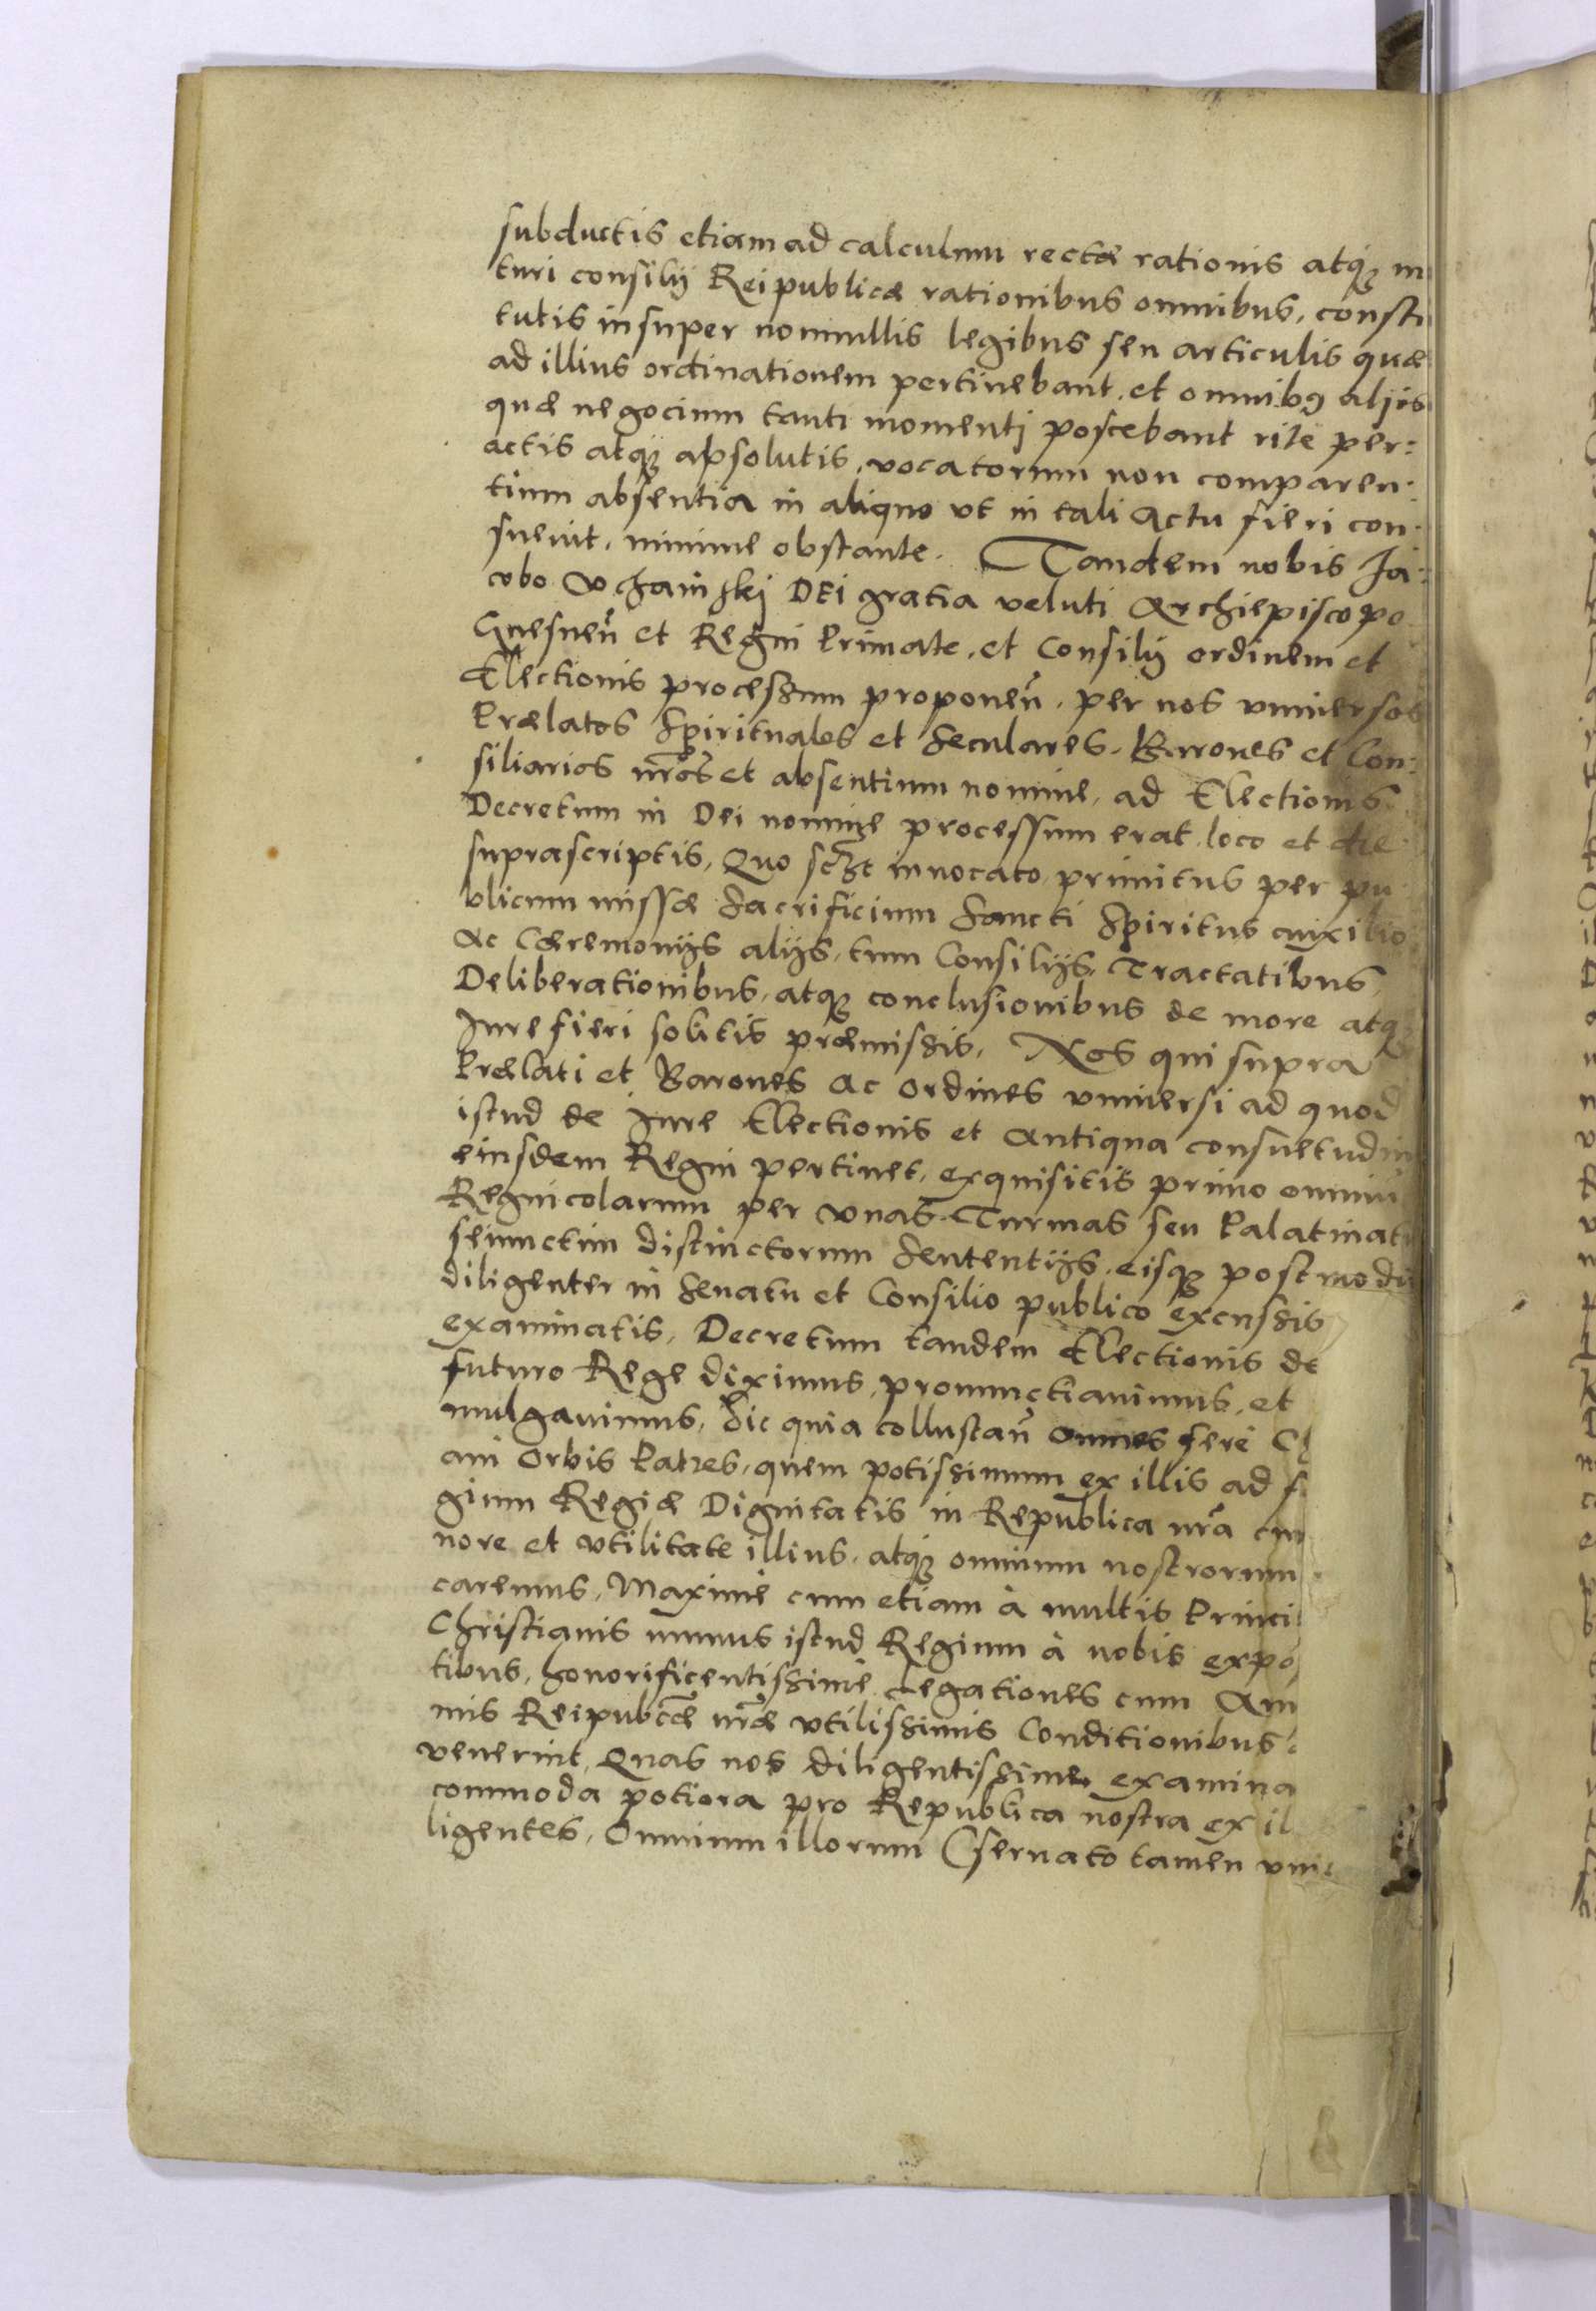 subductis etiam ad calculum rectæ rationis atqꝫ m
turi consilij Reipublicæ rationibus omnibus, consti
tutis insuper nonnullis legibus seu articulis quæ
ad illius ordinationem pertinebant, et omnibꝯ alijs
quæ negocium tanti momenti poscebant rite per:
actis atqꝫ absolutis, vocatorum non comparen:
tium absentia in aliquo vt in tali Actu fieri con:
sueuit, minime obstante. Tandem nobis Ja:
cobo Vchański DEi gratia veluti Archiepiscopo
Gnesneñ et Regni Primate, et Consilij ordinem et
Electionis processum proponeñ, per nos vniuersos
Prælatos Spirituales et Seculares, Barones et Con:
siliarios nr̃os et absentium nomine, ad Electionis
Decretum in Dei nomine processum erat, loco et die
suprascriptis, Quo scꝫt inuocato primitus per pu
blicum missæ Sacrificium Sancti Spiritus auxilio
Ac Cæremonijs alijs, tum Consilijs, Tractatibus,
Deliberationibus, atqꝫ conclusionibus de more atqꝫ
Jure fieri solitis præmissis, Nos qui supra
Prælati et Barones Ac Ordines vniuersi ad quod
istud de Jure Electionis et Antiqua consuetudin
eiusdem Regni pertinet, exquisitis primo omniũ
Regnicolarum per vnas Turmas seu Palatinatu
seiunctim distinctorum Sententijs, eisqꝫ postmodũ
diligenter in Senatu et Consilio publico excussis
examinatis, Decretum tandem Electionis de
futuro Rege diximus, pronunctiauimus, et
mulgauimus, Sic quia collustañ omnes ferè C
ani Orbis Patres, quem potissimum ex illis ad f
gium Regiæ Dignitatis in Republica nr̃a cum
nore et vtilitate illius, atqꝫ omnium nostrorum
caremus, Maxime cum etiam à multis Princi
Christianis munus istud Regium à nobis expo
tibus, honorificentissimè Legationes cum Am
mis Reipubc̃æ nr̃æ vtilissimis Conditionibus
venerint, Quas nos diligentissime examina
commoda potiora pro Republica nostra ex il
ligentes, Omnium illorum (seruato tamen vni